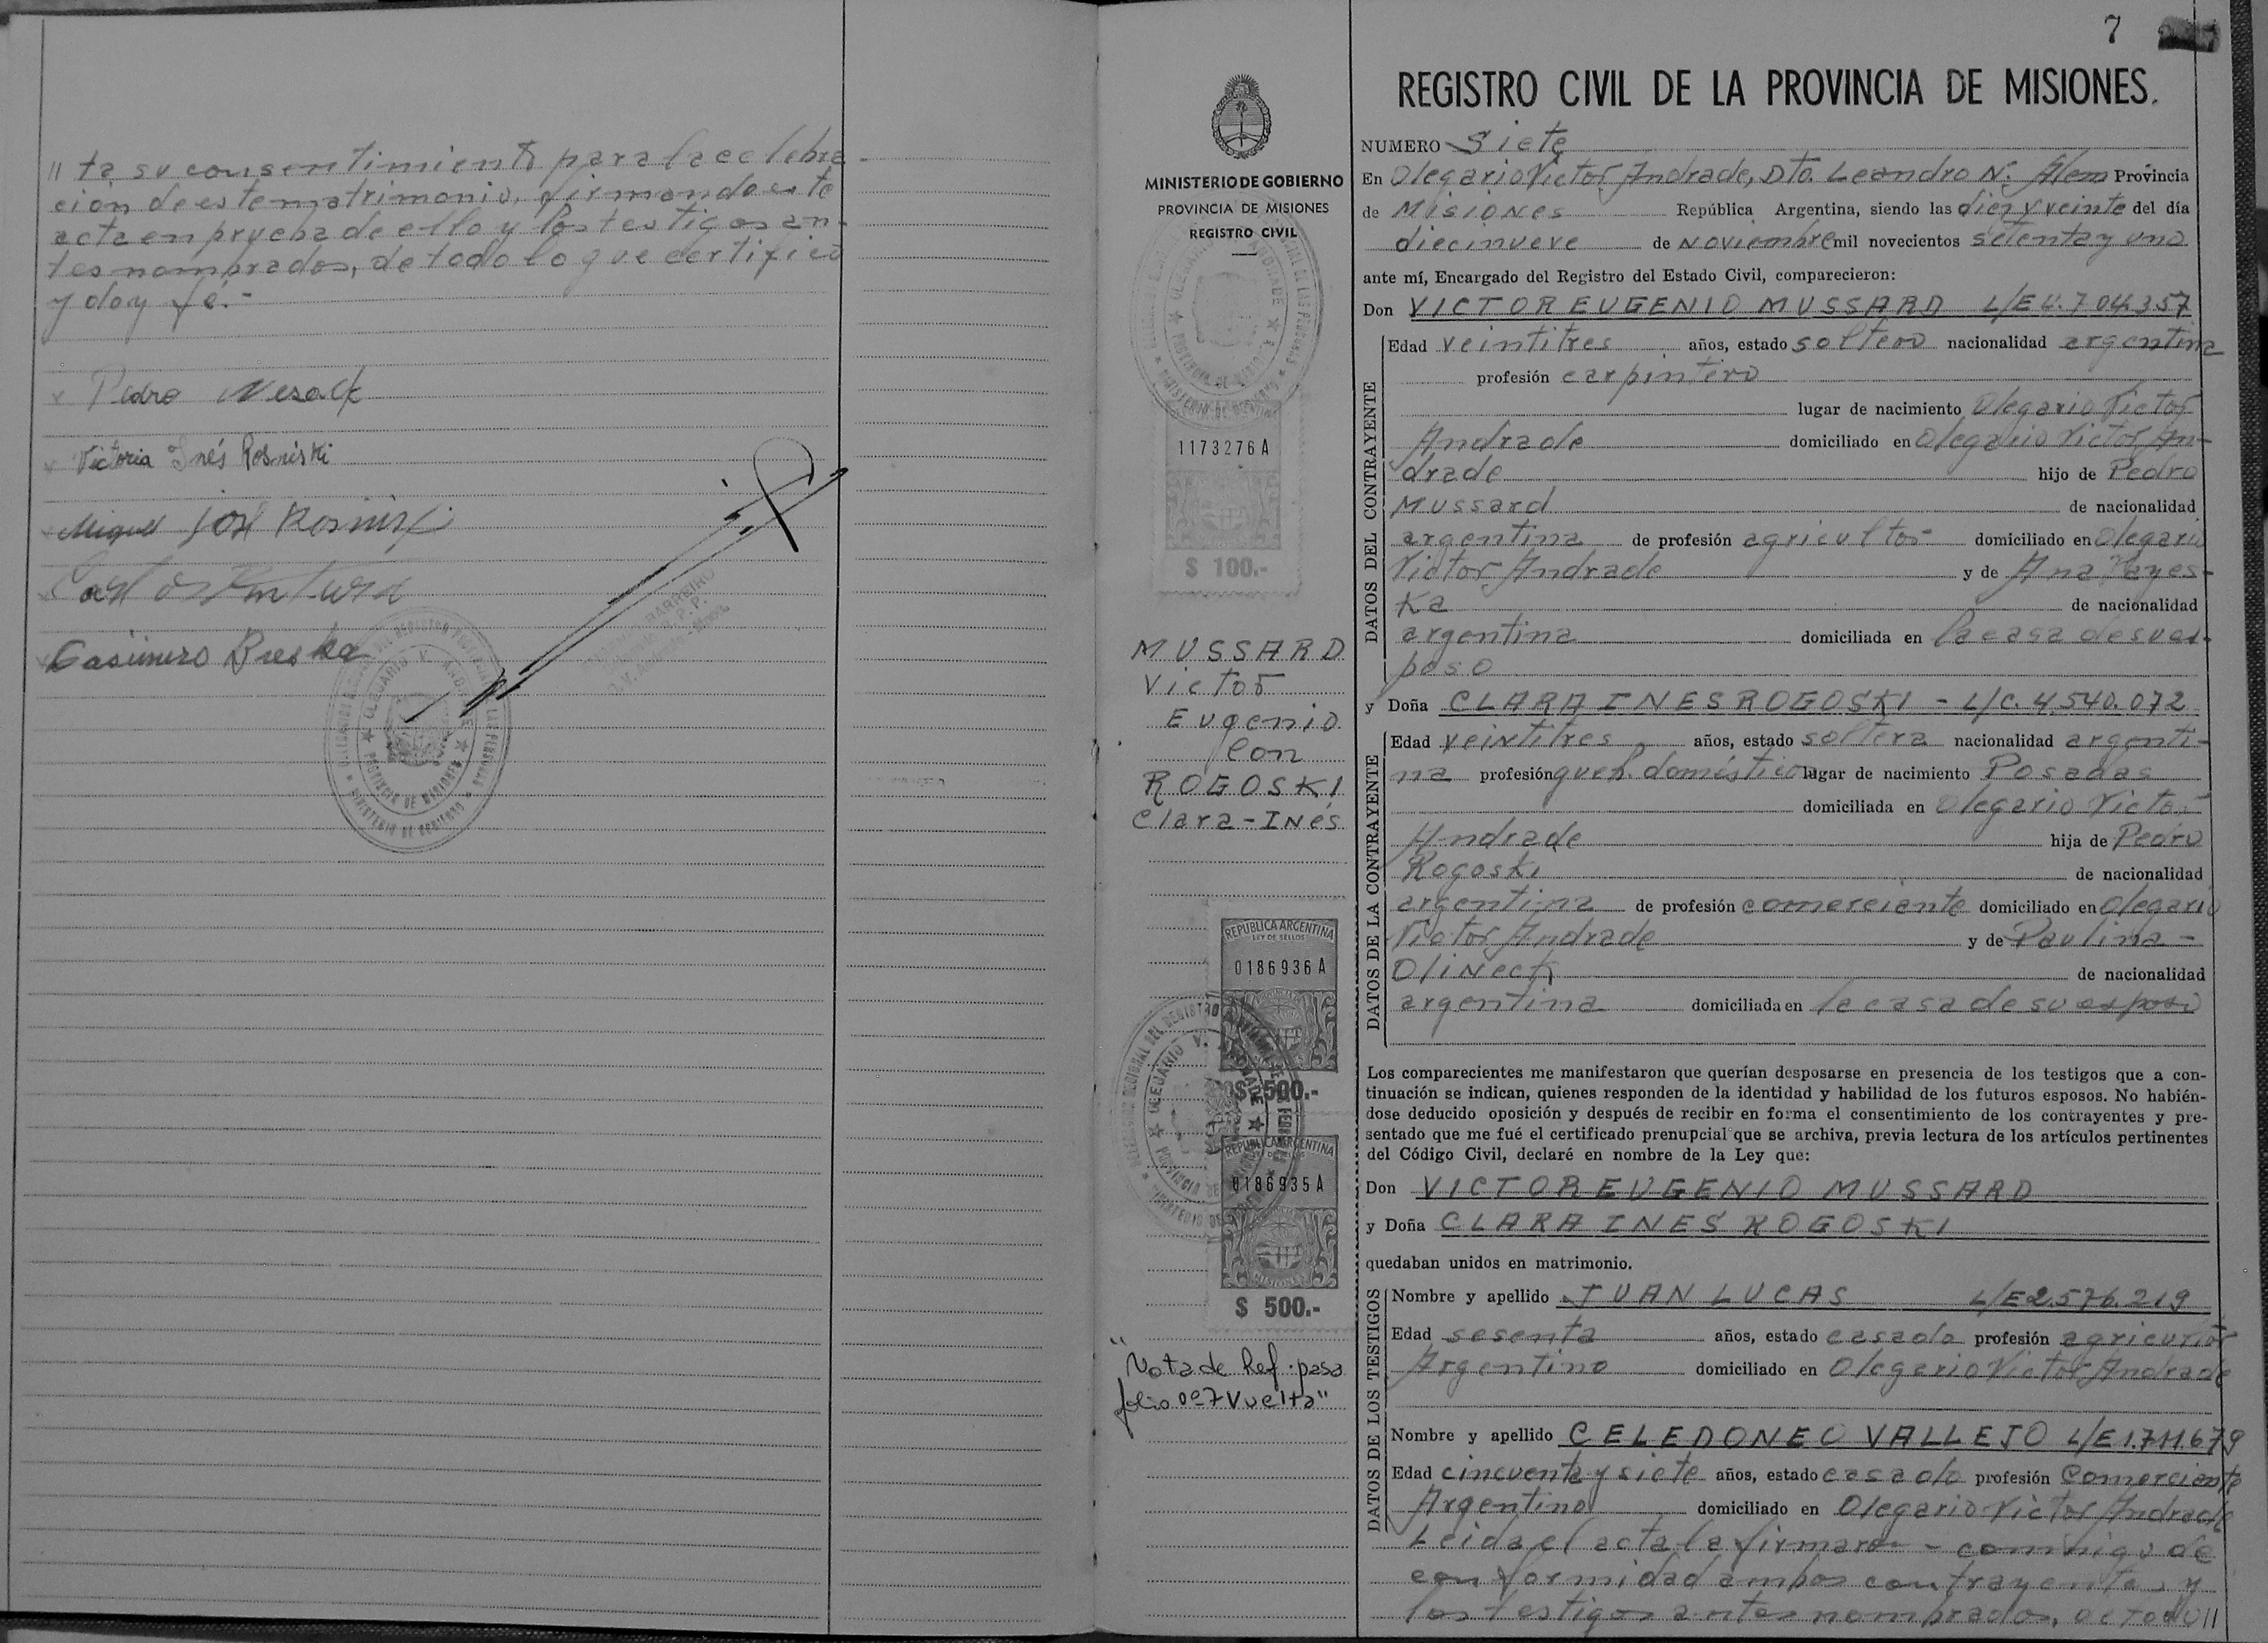 // ta su consentimiento para la celebra-
cion de este matrimonio, firmando este
acta en prueba de ello y los testigos an-
tes nombrados, de todo lo que certifico
y doy fé.-
x Pedro
x Victoria Inés Rosniski
x Miguel José
x
x Casimiro Breska
BARREIRO
MINISTERIO DE GOBIERNO
PROVINCIA DE MISIONES
REGISTRO CIVIL
1173276 A
$ 100.-
MUSSARD
Victor
Eugenio
Con
ROGOSKI
Clara-Inés
REPUBLICA ARGENTINA
LEY DE SELLOS
0186936 A
$ 500.-
REPUBLICA ARGENTINA
0186935 A
MISIONES
$ 500.-
"Nota de Ref. pasa
folio nº 7 Vuelta"
7
REGISTRO CIVIL DE LA PROVINCIA DE MISIONES.
NUMERO Siete
En Olegario Victor Andrade, Dto. Leandro N. Alem Provincia
de Misiones República Argentina, siendo las diez y veinte del día
diecinueve de noviembre mil novecientos setenta y uno
ante mí, Encargado del Registro del Estado Civil, comparecieron:
Don VICTOR EUGENIO MUSSARD L/E 4.704.357
DATOS DEL CONTRAYENTE
Edad veintitres años, estado soltero nacionalidad argentina
profesión carpintero
lugar de nacimiento Olegario Victor
Andrade domiciliado en Olegario Victor An-
drade hijo de Pedro
Mussard de nacionalidad
argentina de profesión agricultor domiciliado en Olegario
Victor Andrade y de Ana
ka de nacionalidad
argentina domiciliada en la casa de su es-
poso
y Doña CLARA INES ROGOSKI - L/C. 4.540.072
DATOS DE LA CONTRAYENTE
Edad veintitres años, estado soltera nacionalidad argenti-
na profesión queh. doméstico lugar de nacimiento Posadas
domiciliada en Olegario Victor
Andrade hija de Pedro
Rogoski de nacionalidad
argentina de profesión comerciante domiciliado en Olegario
Victor Andrade y de Paulina -
Olineck de nacionalidad
argentina domiciliada en la casa de su esposo
Los comparecientes me manifestaron que querían desposarse en presencia de los testigos que a con-
tinuación se indican, quienes responden de la identidad y habilidad de los futuros esposos. No habién-
dose deducido oposición y después de recibir en forma el consentimiento de los contrayentes y pre-
sentado que me fué el certificado prenupcial que se archiva, previa lectura de los artículos pertinentes
del Código Civil, declaré en nombre de la Ley que:
Don VICTOR EUGENIO MUSSARD
y Doña CLARA INES ROGOSKI
quedaban unidos en matrimonio.
DATOS DE LOS TESTIGOS
Nombre y apellido JUAN LUCAS L/E 2.576.219
Edad sesenta años, estado casado profesión agricultor
Argentino domiciliado en Olegario Victor Andrade
Nombre y apellido CELEDONEO VALLEJO L/E 1.711.679
Edad cincuenta y siete años, estado casado profesión Comerciante
Argentino domiciliado en Olegario Victor Andrade
Leida el acta la firmaron - conmigo de
conformidad ambos contrayentes y
los testigos antes nombrados,